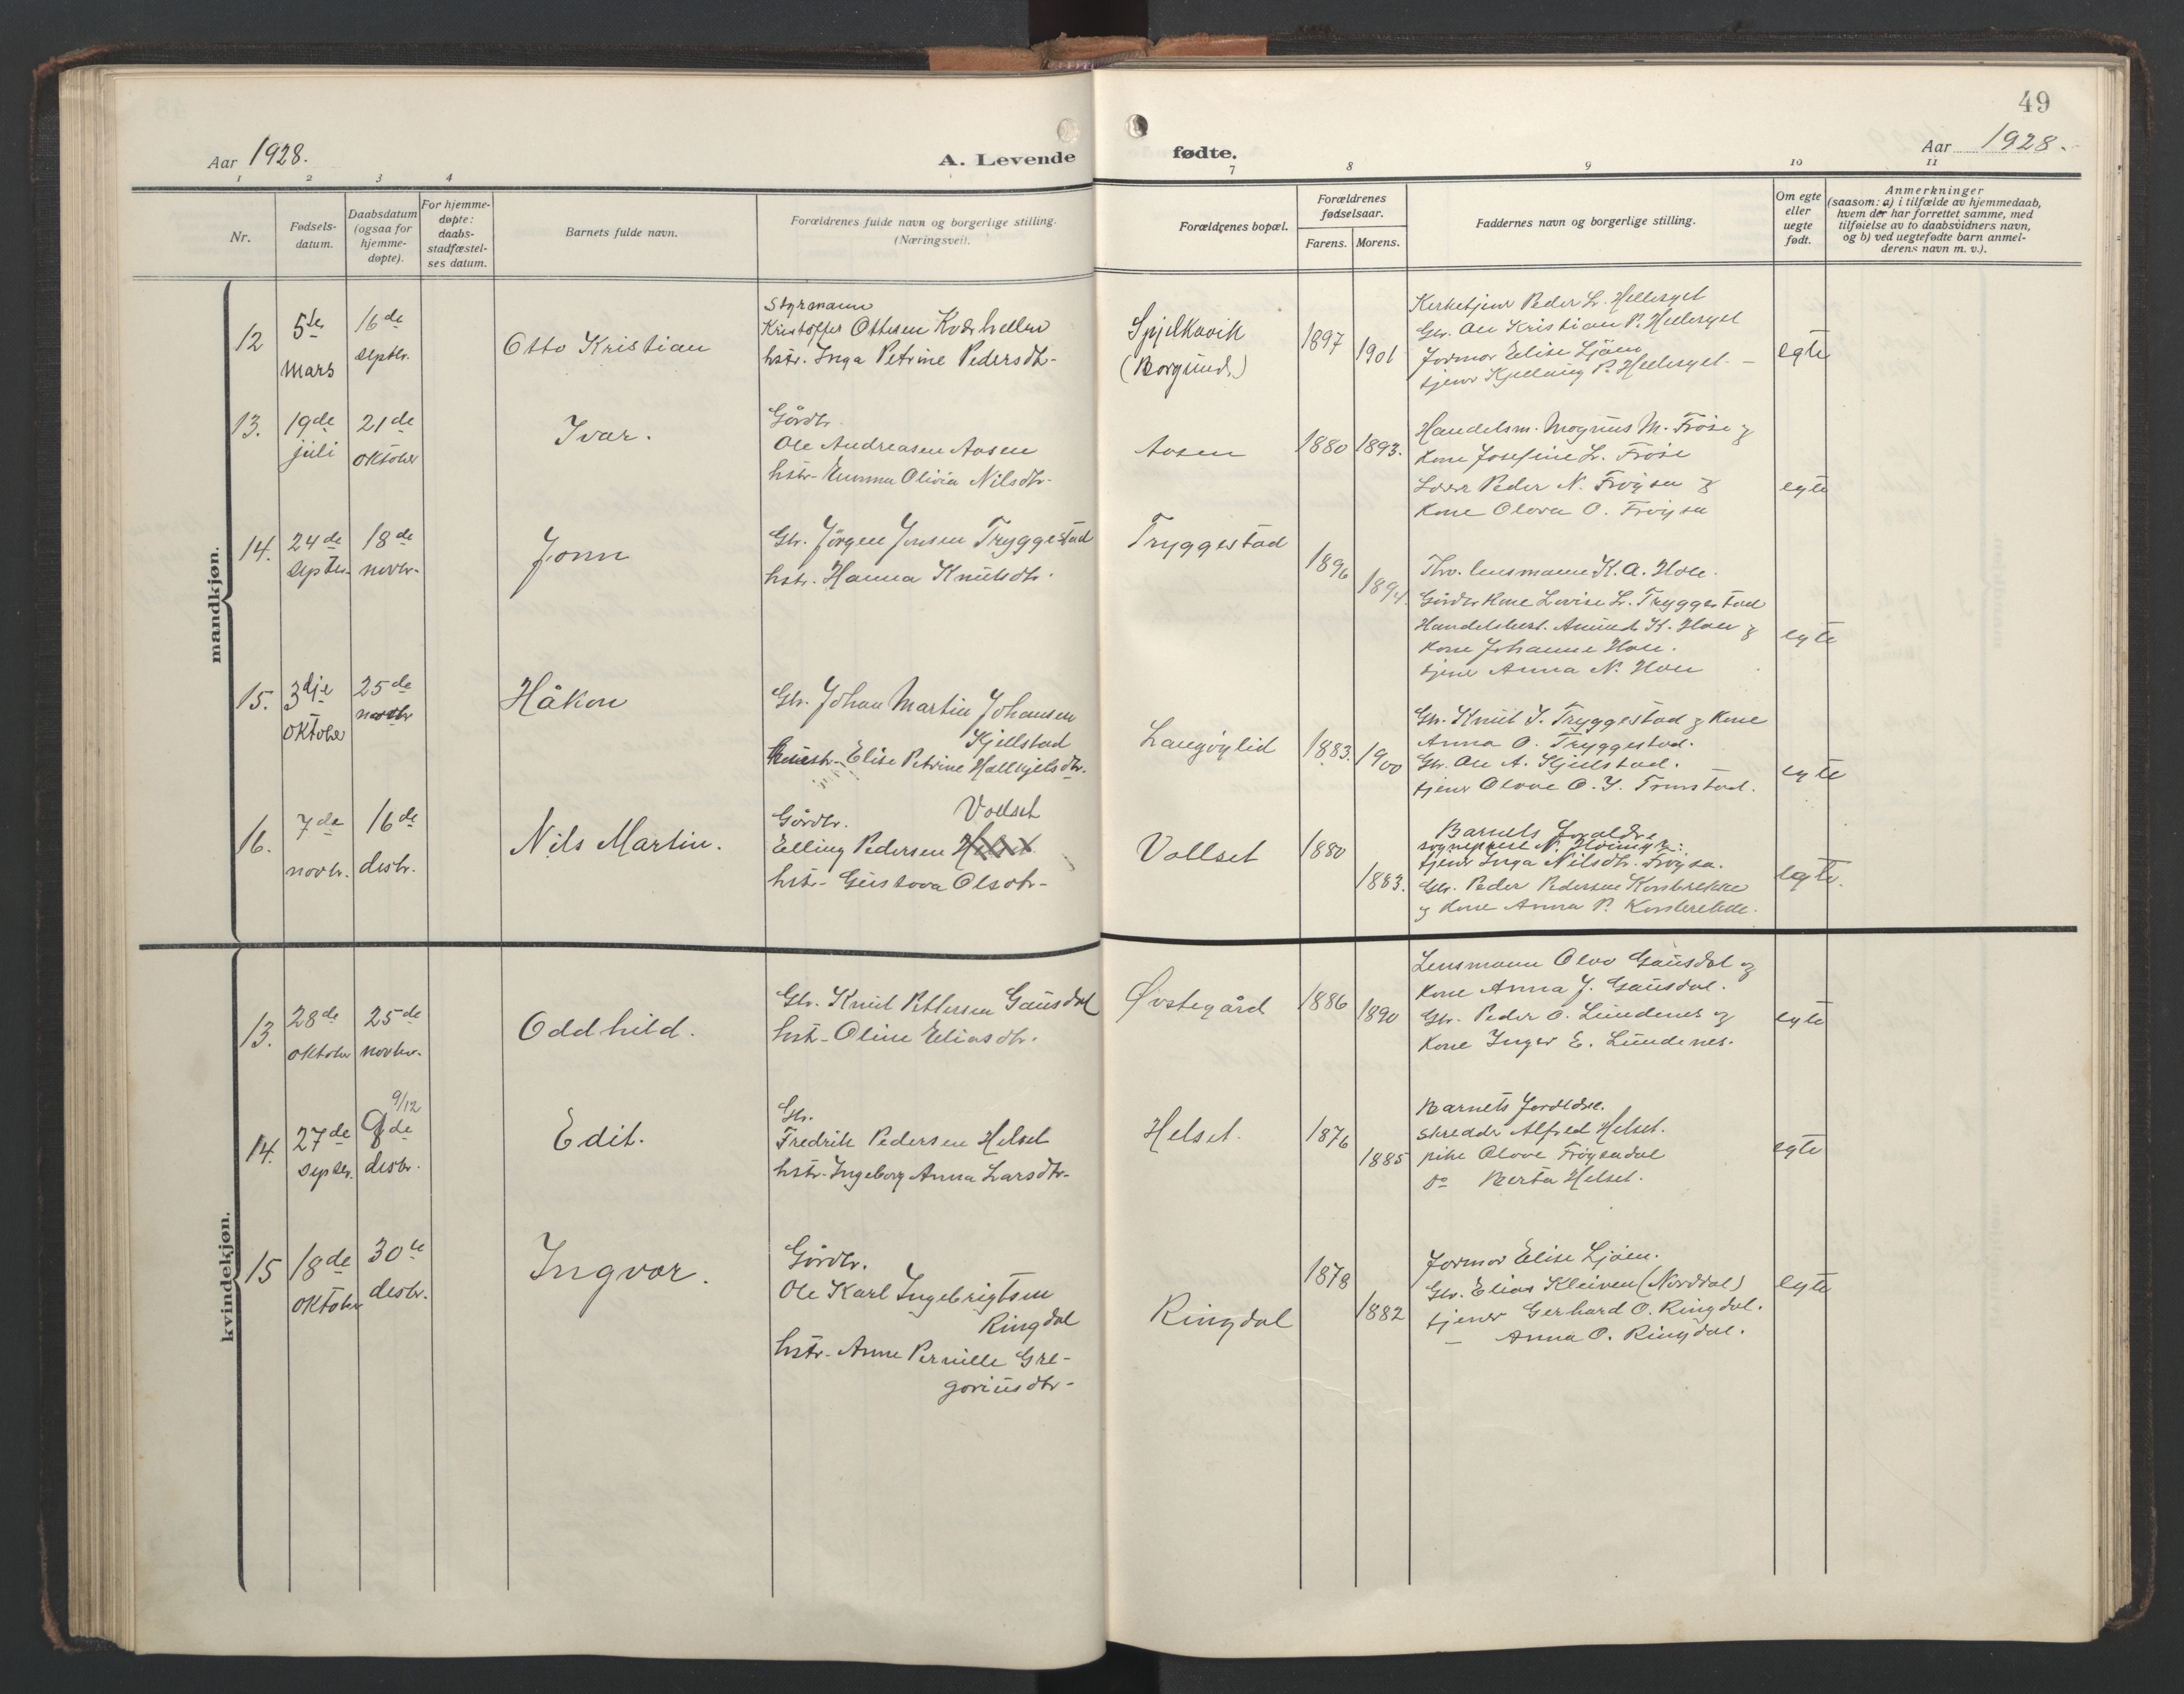 49
Aar 1928.
A. Levende
fødte.
Aar 1928.
1 2 3 4
7 8 9 10 11
Nr.
Fødsels-
datum.
Daabsdatum
(ogsaa for
hjemme-
døpte).
For hjemme-
døpte:
daabs-
stadfæstel-
ses datum.
Barnets fulde navn.
Forældrenes fulde navn og borgerlige stilling.
(Næringsvei).
Forældrenes bopæl.
Forældrenes
fødselsaar.
Farens. Morens.
Faddernes navn og borgerlige stilling.
Om egte
eller
uegte
født.
Anmerkninger
(saasom: a) i tilfælde av hjemmedaab,
hvem der har forrettet samme, med
tilføielse av to daabsvidners navn,
og b) ved uegtefødte barn anmel-
derens navn m. v.).
mandkjøn.
12
5te
Mars
16de
septbr.
Otto Kristian
Styrmann
Kristoffer Ottesen
hstr. Inga Petrine Pedersdtr.
Spjelkavik
(Borgund.)
1897
1901
Kirketjener Peder L. Hellesylt
Gbr. Ole Kristian P. Hellesylt
Jormor Elise Ljøen
tjener P. Hellesylt
egte
13.
19de
juli
21de
oktober
Ivar.
Gårdbr.
Ole Andreasen Aasen
hstr. Emma Olivia Nilsdtr.
Aasen
1880
1893.
Handelsm. Magnus M. Frøise og
kone Josefine L. Frøise
Peder N. Frøysa og
kone Olava O. Frøysa
egte
14.
24de
septbr.
18de
novbr.
Jonn
Gbr. Jørgen Jonsen Tryggestad
hstr. Hanna Knutsdtr.
Tryggestad
1896
1894.
Fhv. lensmann K. A. Hole.
Gårdbr kone Lovise L. Tryggestad
Handelsbest. Amund K. Hole og
kone Johanne Hole.
tjener Anna N. Hole
egte
15.
3dje
oktober
25de
novbr
Håkon
Gbr. Johan Martin Johansen
Kjellstad
hustr. Elise Petrine Hallkjelsdtr.
Langøylid
1883.
1900
Gbr. Knut J. Tryggestad og kone
Anna O. Tryggestad.
Gbr. Ole A. Kjellstad.
tjener Olave O. J. Tronstad.
egte
16.
7de
novbr.
16de
desbr.
Nils Martin.
Gårdbr. Vollset
Elling Pedersen
hstr. Gustava Olsdtr.
Vollset
1880
1883.
Barnets foreldre
sogneprest N.
tjener Inga Nilsdtr. Frøysa.
Gbr. Peder Pedersen Korsbrekke
og kone Anna P. Korsbrekke.
egte.
kvindekjøn.
13.
28de
oktober
25de
novbr.
Oddhild.
Gbr. Knut Pettersen Gausdal
hstr. Oline Eliasdtr.
Øvstegård
1886
1890
Lensmann Olav Gausdal og
kone Anna J. Gausdal.
Gbr. Peder O. Lundenes og
kone Inger E. Lundenes.
egte
14.
27de
septbr.
9/12
9de
desbr.
Edit.
Gbr.
Fredrik Pedersen Helset
hstr. Ingeborg Anna Larsdtr.
Helset.
1876
1885
Barnets foreldre.
Skredder Alfred Helset.
pike Olave Frøysadal
do Berta Helset.
egte
15
18de
oktober
30te
desbr.
Ingvar.
Gårdbr.
Ole Karl Ingebrigtsen
Ringdal
hstr. Anne Pernille Gre-
goriusdtr.
Ringdal
1878
1882
Jormor Elise Ljøen.
Gbr. Elias Kleiven (Norddal)
tjener Gerhard O. Ringdal.
— Anna O. Ringdal.
egte